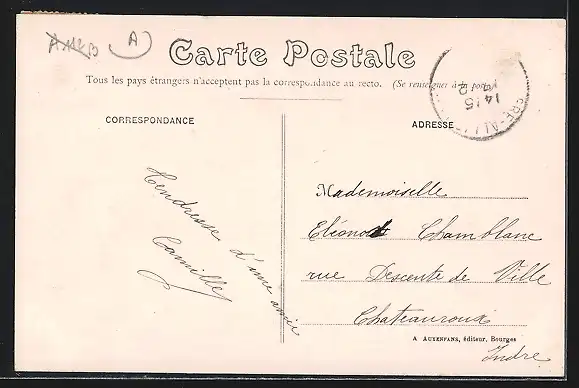 Carte Postale
Tous les pays étrangers n'acceptent pas la correspondance au recto. (Se renseigner à la poste)
CORRESPONDANCE
ADRESSE
14 15
Tendresse d'une amie
Camille
Mademoiselle
Eléonore Chamblanc
rue Descente de Ville
Chateauroux
A AUXENFANS, éditeur, Bourges
Indre